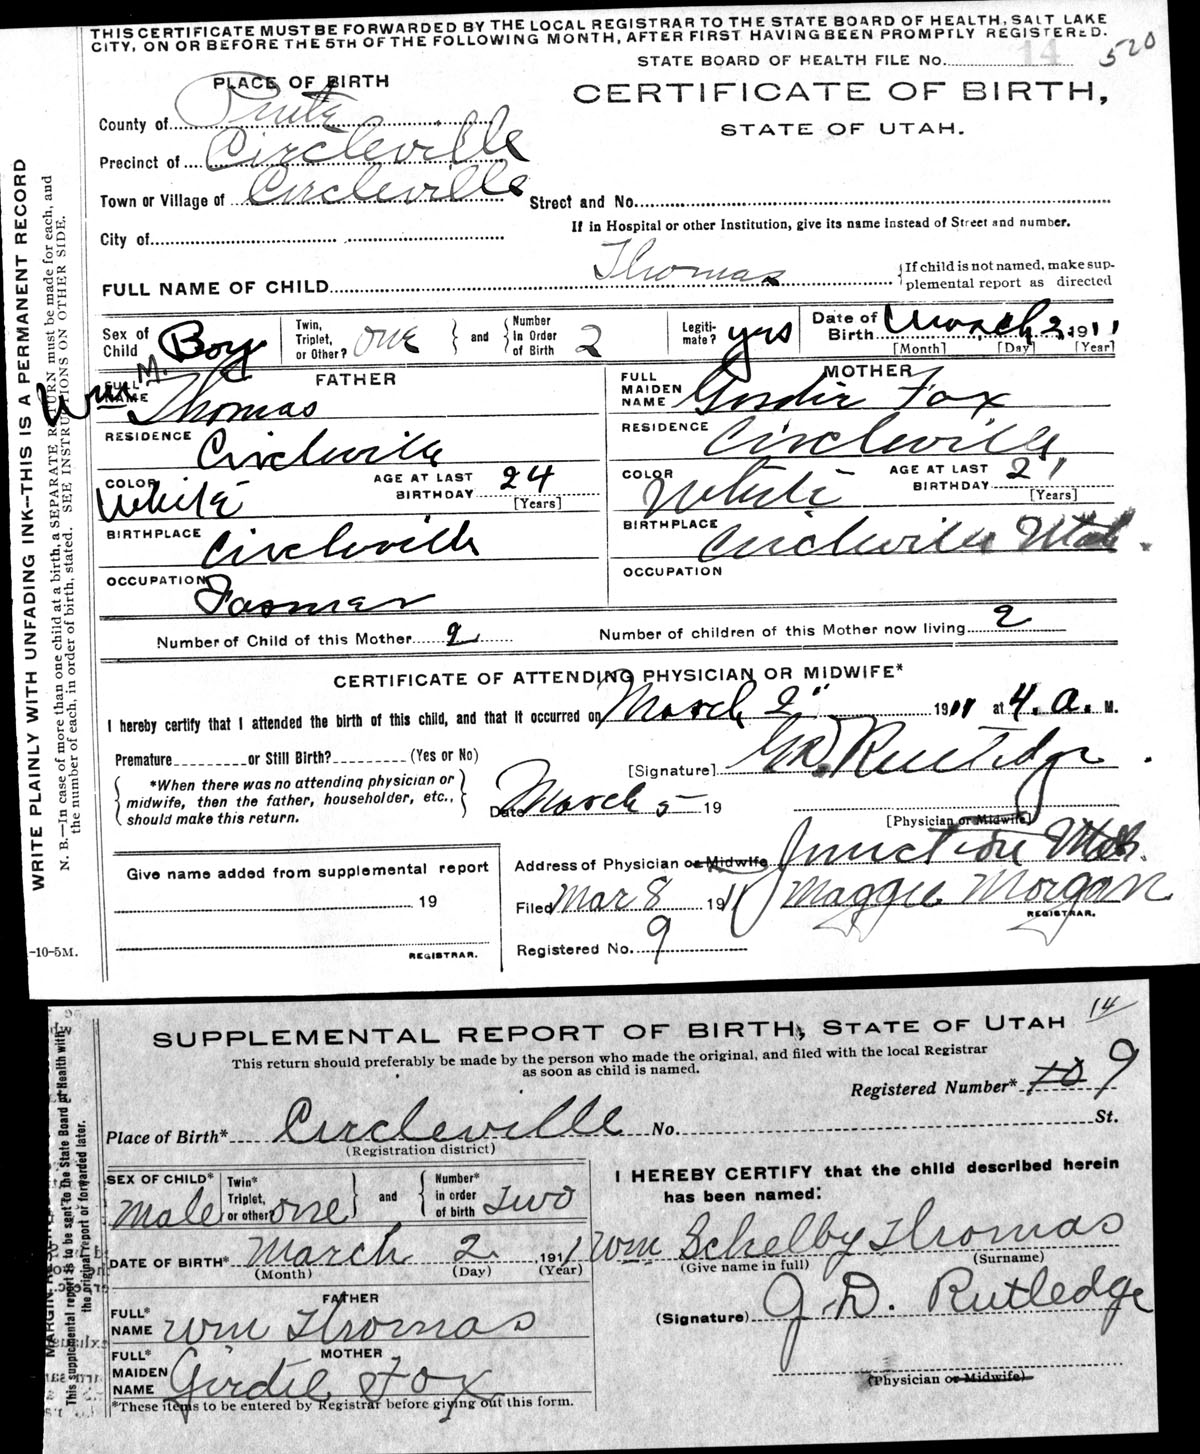 THIS CERTIFICATE MUST BE FORWARDED BY THE LOCAL REGISTRAR TO THE STATE BOARD OF HEALTH, SALT LAKE
CITY, ON OR BEFORE THE 5TH OF THE FOLLOWING MONTH, AFTER FIRST HAVING BEEN PROMPTLY REGISTERED.
STATE BOARD OF HEALTH FILE No. 14 520
PLACE OF BIRTH
CERTIFICATE OF BIRTH,
STATE OF UTAH.
County of Piute
Precinct of Circleville
Town or Village of Circleville
Street and No.
If in Hospital or other Institution, give its name instead of Street and number.
City of
FULL NAME OF CHILD Thomas
If child is not named, make sup-
plemental report as directed
Sex of Child Boy
Twin, Triplet, or Other? one and Number in Order of Birth 2
Legiti-mate? yes
Date of Birth March 2, 1911
[Month] [Day] [Year]
FATHER
FULL NAME Wm M. Thomas
RESIDENCE Circleville
COLOR White
AGE AT LAST BIRTHDAY 24
[Years]
BIRTHPLACE Circleville
OCCUPATION Farmer
MOTHER
FULL MAIDEN NAME Gerdie Fox
RESIDENCE Circleville
COLOR White
AGE AT LAST BIRTHDAY 21
[Years]
BIRTHPLACE Circleville Utah.
OCCUPATION
Number of Child of this Mother 2
Number of children of this Mother now living 2
CERTIFICATE OF ATTENDING PHYSICIAN OR MIDWIFE*
I hereby certify that I attended the birth of this child, and that it occurred on March 2" 1911 at 4. a. M.
Premature or Still Birth? (Yes or No)
[Signature] G.D. Rutledge
*When there was no attending physician or
midwife, then the father, householder, etc.,
should make this return.
Date March 5 19
[Physician or Midwife]
Address of Physician or Midwife Junction Utah.
Give name added from supplemental report
19
REGISTRAR.
Filed Mar 8 1911 Maggie Morgan
REGISTRAR.
Registered No. 9
-10-5M.
WRITE PLAINLY WITH UNFADING INK—THIS IS A PERMANENT RECORD
N. B.—In case of more than one child at a birth, a SEPARATE RETURN must be made for each, and
the number of each, in order of birth, stated. SEE INSTRUCTIONS ON OTHER SIDE.
14
SUPPLEMENTAL REPORT OF BIRTH, STATE OF UTAH
This return should preferably be made by the person who made the original, and filed with the local Registrar
as soon as child is named.
Registered Number* 10 9
Place of Birth* Circleville No. St.
(Registration district)
SEX OF CHILD* Male
Twin* Triplet, or other one and Number* in order of birth Two
DATE OF BIRTH* March 2. 1911
(Month) (Day) (Year)
FATHER
FULL* NAME Wm Thomas
MOTHER
FULL* MAIDEN NAME Girdie Fox
*These items to be entered by Registrar before giving out this form.
I HEREBY CERTIFY that the child described herein
has been named:
Wm Schelby Thomas
(Give name in full) (Surname)
(Signature) G. D. Rutledge
(Physician or Midwife)
This supplemental report is to be sent to the State Board of Health with
the original report or forwarded later.